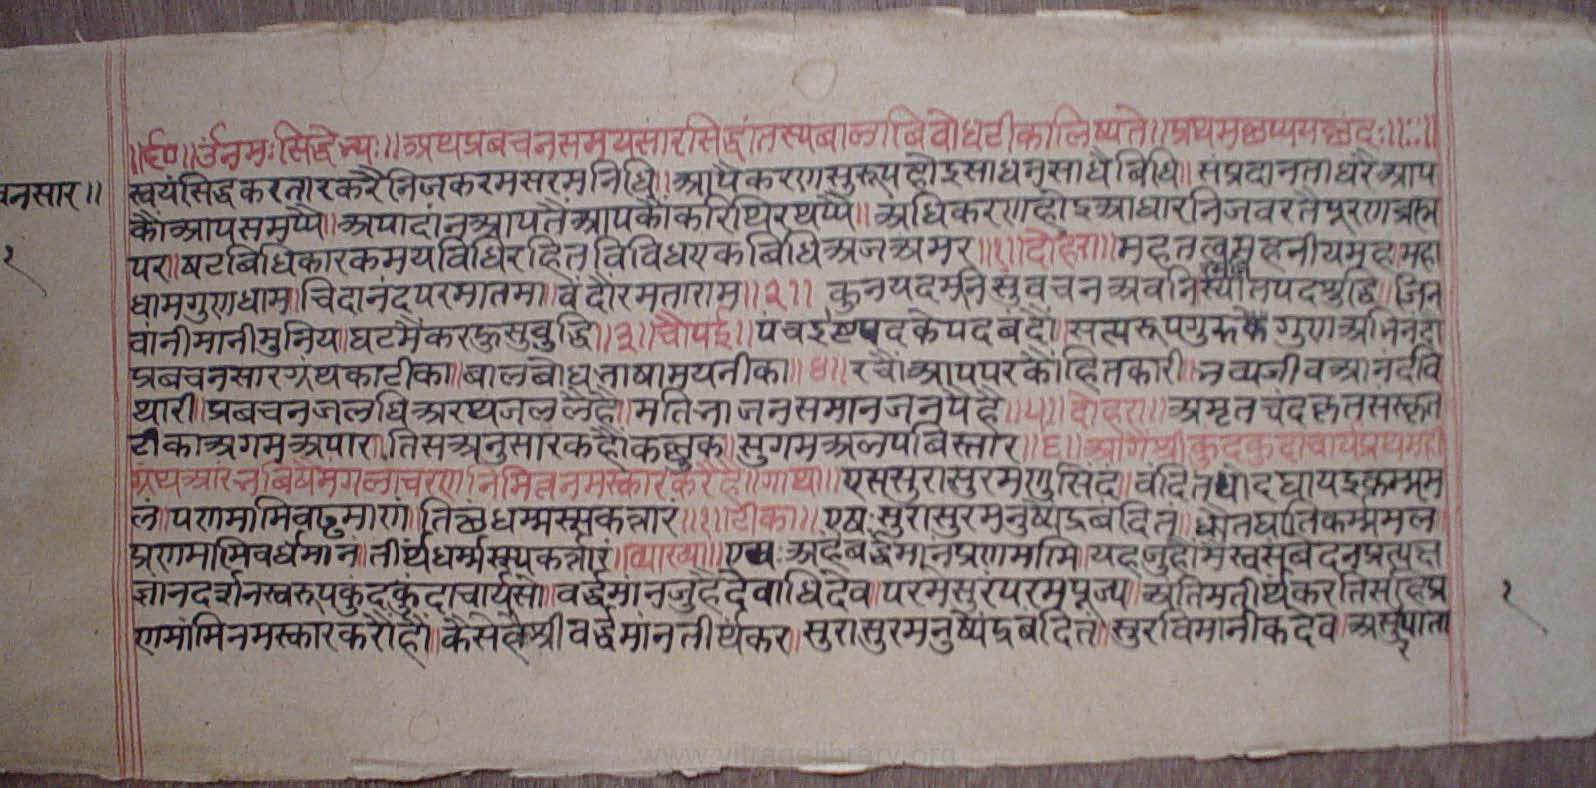 ॥६०॥ ॐ नमः सिद्धेभ्यः ॥ अथ प्रबचनसमयसारसिद्धांतस्य बालाबिबोध टीका लिष्यते ॥ प्रथम छप्पय छंदः ॥
वनसार ॥
स्वयं सिद्ध करतार करै निज करम सरम निधि ॥ आपै करण सुरूप होइ साधन साधै बिधि ॥ संप्रदानता धरै आप
कौं आप समप्पै ॥ अपादांन आपतैं आपकौं करि थिर थप्पै ॥ अधिकरण होइ आधार निज वरतै पूरण ब्रह्म
१
पर ॥ षट बिधि कारकमय विधि रहित विविध एक बिधि अज अमर ॥१॥ दोहरा ॥ महतत्व महनीय मह महा
धाम गुणधाम ॥ चिदानंद परमातमा वंदौं रमता राम ॥२॥ कुनय दमनि सुवचन अवनि स्यात पद शुद्धि ॥ जिन
वांनी मानी मुनिय घटमैं करहु सुबुद्धि ॥३॥ चौपई ॥ पंच इष्ट पद के पद बंदौं ॥ सत्यरूप गुरु के गुण अभिनंदौ
प्रबचनसार ग्रंथ का टीका ॥ बालबोध भाषामय नीका ॥४॥ रचौं आप पर कौं हितकारी ॥ भव्य जीव आनंद वि
थारी ॥ प्रबचन जलधि अरथ जल लैहै ॥ मति भाजन समान जन पैहै ॥५॥ दोहरा ॥ अमृतचंद कृत संस्कृत
टीका अगम अपार ॥ तिस अनुसार कहौं कछुक ॥ सुगम अलप बिस्तार ॥६॥ आगे श्री कुंदकुंदाचार्य प्रथम ही
ग्रंथ आरंभ बिषै मंगलाचरण निमित्त नमस्कार करै है ॥ गाथा ॥ एस सुरासुर मणुसिंद वंदितं धोद घायइ कम्मम
लं ॥ पणमामि वढ्ढमाणं तित्थं धम्मस्स कत्तारं ॥१॥ टीका ॥ एष सुरासुर मनुष्येंद्र बंदितं धौतघाति कर्ममल
प्रणमामि वर्धमानं ॥ तीर्थं धर्मस्य कत्तारं ॥ व्याख्या ॥ एष अहं बर्द्धमानं प्रणमामि यह जु हौं मैं स्वसंबेदन प्रत्यक्ष
ज्ञान दर्शन स्वरूप कुंदकुंदाचार्य सो वर्द्धमांन जु है देवाधिदेव ॥ परमेसुर परम पूज्य ॥ अंतिम तीर्थंकर तिसहि प्र
१
णमांमि नमस्कार करौं हौं ॥ कैसे है श्री वर्द्धमांन तीर्थंकर ॥ सुरासुर मनुष्येंद्र बंदितं ॥ सुर विमानीक देव ॥ असुर पाता
www.vitragelibrary.org